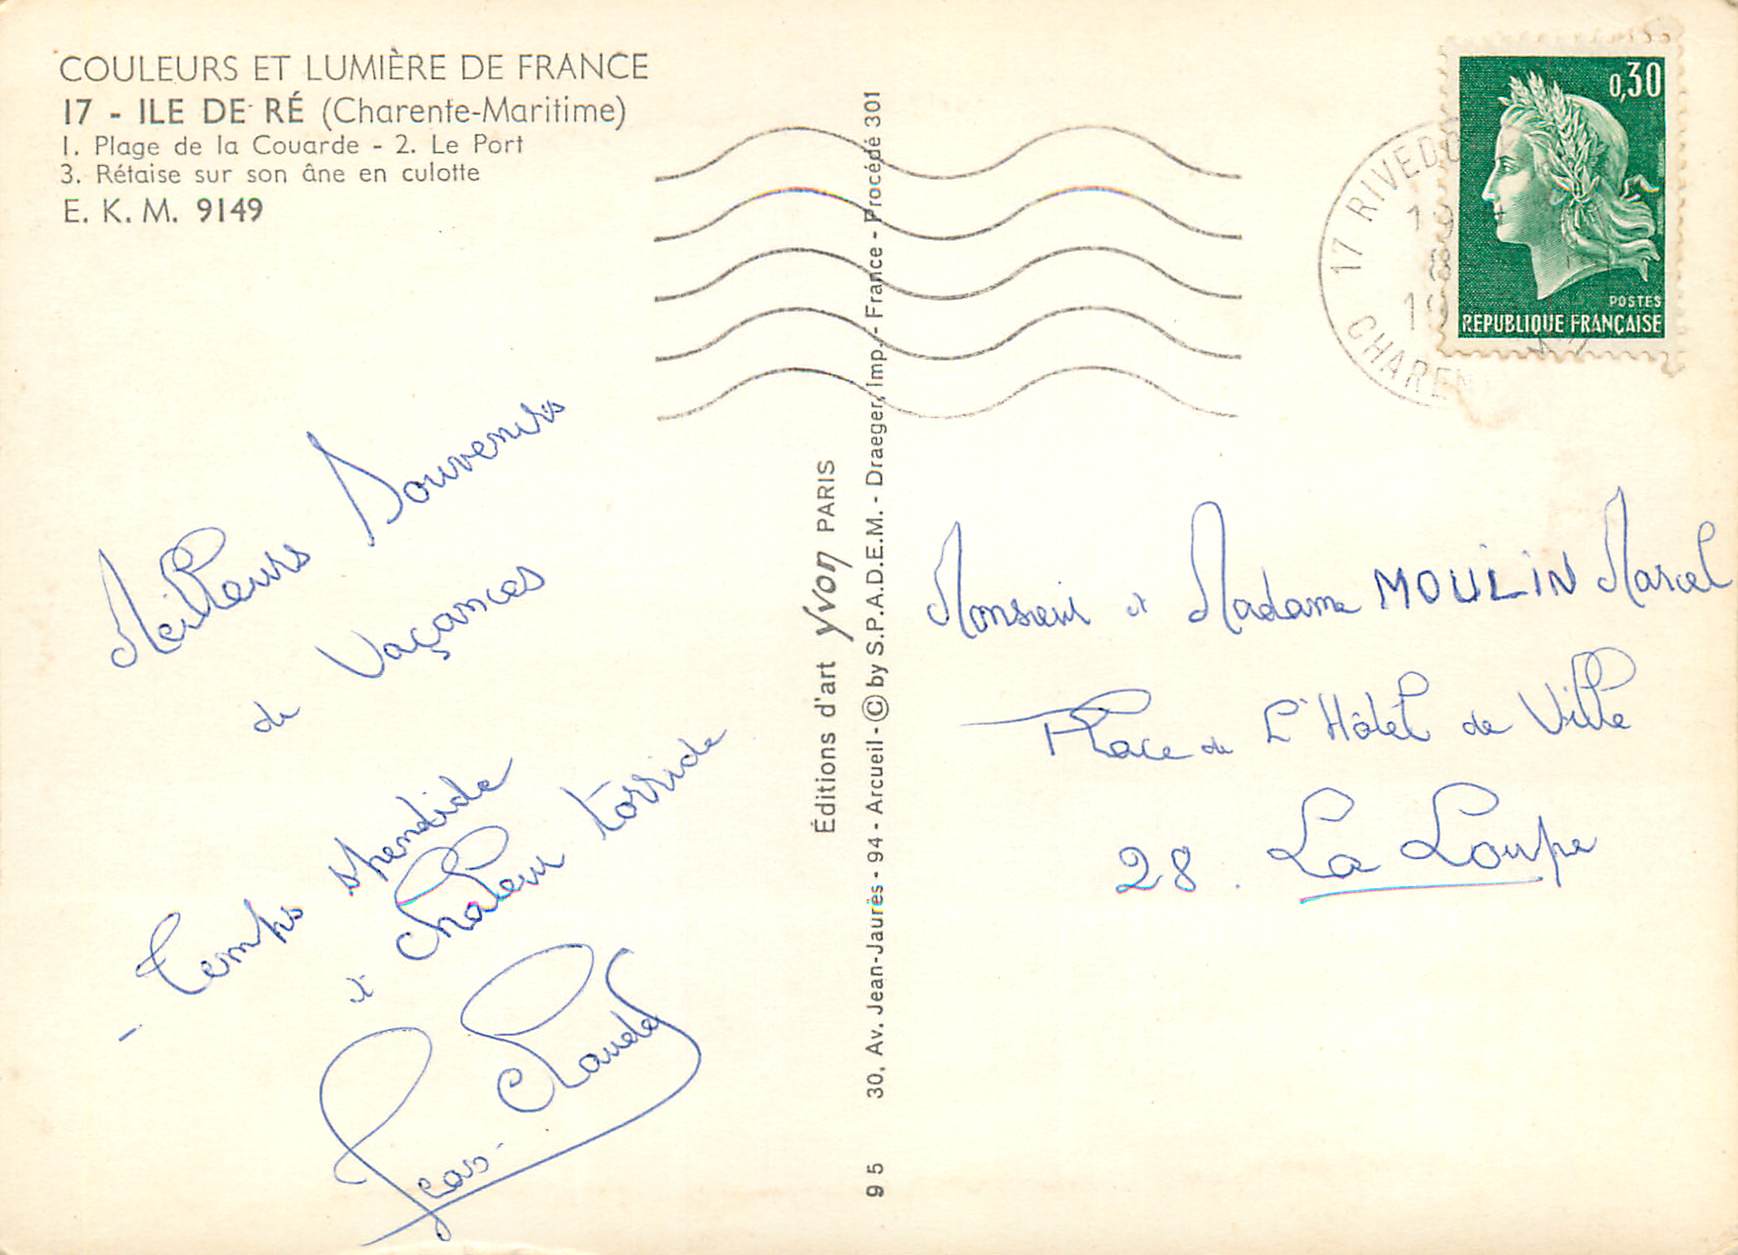 COULEURS ET LUMIÈRE DE FRANCE
17 - ILE DE RÉ (Charente-Maritime)
1. Plage de la Couarde - 2. Le Port
3. Rétaise sur son âne en culotte
E. K. M. 9149
Meilleurs Souvenirs
de Vaçances
- Temps splendide
et chaleur torride
Jean-Claude
Éditions d'art Yvon PARIS
95 30, Av. Jean-Jaurès - 94 - Arcueil - © by S.P.A.D.E.M. - Draeger, Imp. - France - Procédé 301
17 RIVEDO
CHAREN
0,30
POSTES
REPUBLIQUE FRANÇAISE
Monsieur et Madame MOULIN Marcel
Place de L'Hôtel de Ville
28. La Loupe